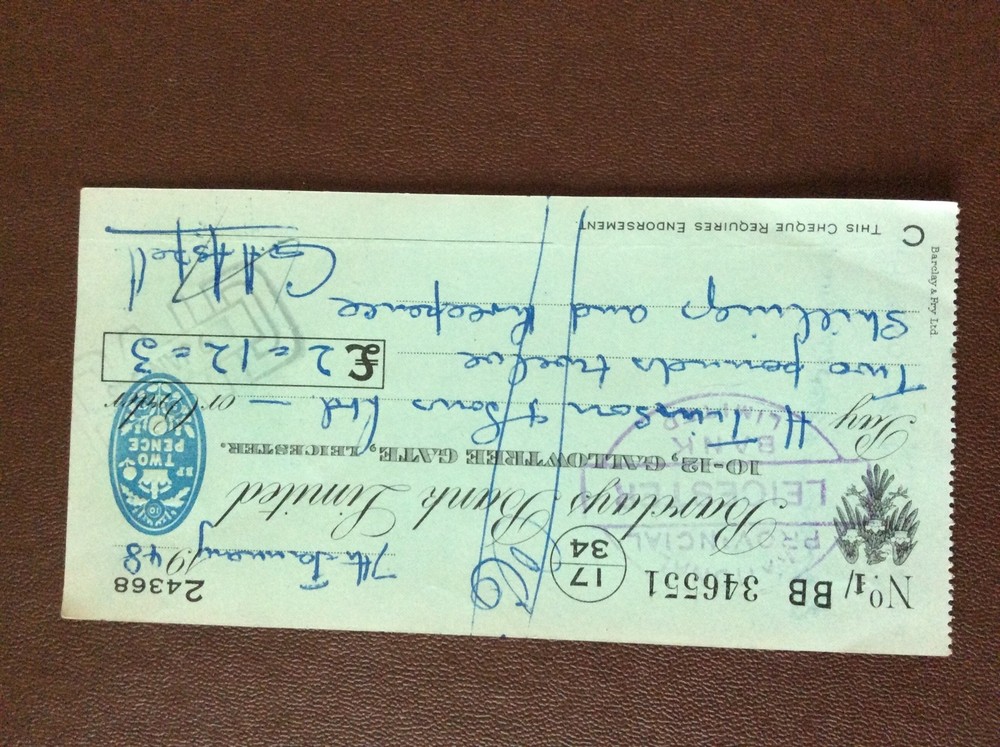 No. 1/BB 346551
17
34
24368
7th January 1948
Barclays Bank Limited
10-12, GALLOWTREE GATE, LEICESTER.
Pay H Turson & Sons Ltd. — or Order
Two pounds twelve
Shillings and threepence
£2 = 12 = 3
TWO
PENCE
PROVINCIAL
LEICESTER
BANK
LIMITED
C THIS CHEQUE REQUIRES ENDORSEMENT
Barclay & Fry Ltd.